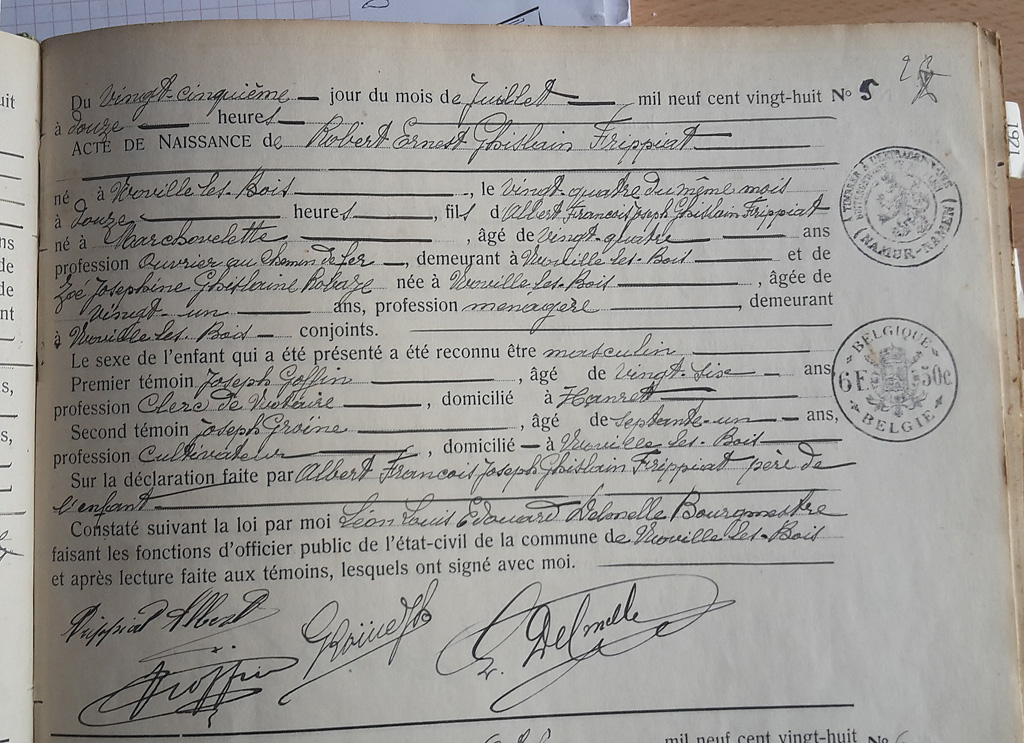 Du Vingt-cinquième jour du mois de Juillet mil neuf cent vingt-huit No 5
à douze heures
ACTE DE NAISSANCE de Robert Ernest Ghislain Frippiat
né à Noville-les-Bois, le vingt-quatre du même mois
à douze heures, fils d'Albert François Joseph Ghislain Frippiat
né à Marchovelette, âgé de vingt-quatre ans
profession Ouvrier au Chemin de fer, demeurant à Noville-les-Bois et de
Zoé Joséphine Ghislaine née à Noville-les-Bois, âgée de
vingt-un ans, profession ménagère, demeurant
à Noville-les-Bois conjoints.
Le sexe de l'enfant qui a été présenté a été reconnu être masculin
Premier témoin Joseph Goffin, âgé de vingt-six ans
profession Clerc de Notaire, domicilié à Hanret
Second témoin Joseph Groïne, âgé de septante-un ans,
profession Cultivateur, domicilié à Noville-les-Bois
Sur la déclaration faite par Albert François Joseph Ghislain Frippiat père de
l'enfant
Constaté suivant la loi par moi Léon Louis Edouard Delmelle Bourgmestre
faisant les fonctions d'officier public de l'état-civil de la commune de Noville-les-Bois
et après lecture faite aux témoins, lesquels ont signé avec moi.
Frippiat Albert
Groïne Jh
L. Delmelle
Goffin
mil neuf cent vingt-huit No
NAMUR-NAMEN
BELGIQUE
6F. 50c.
BELGIE
1921